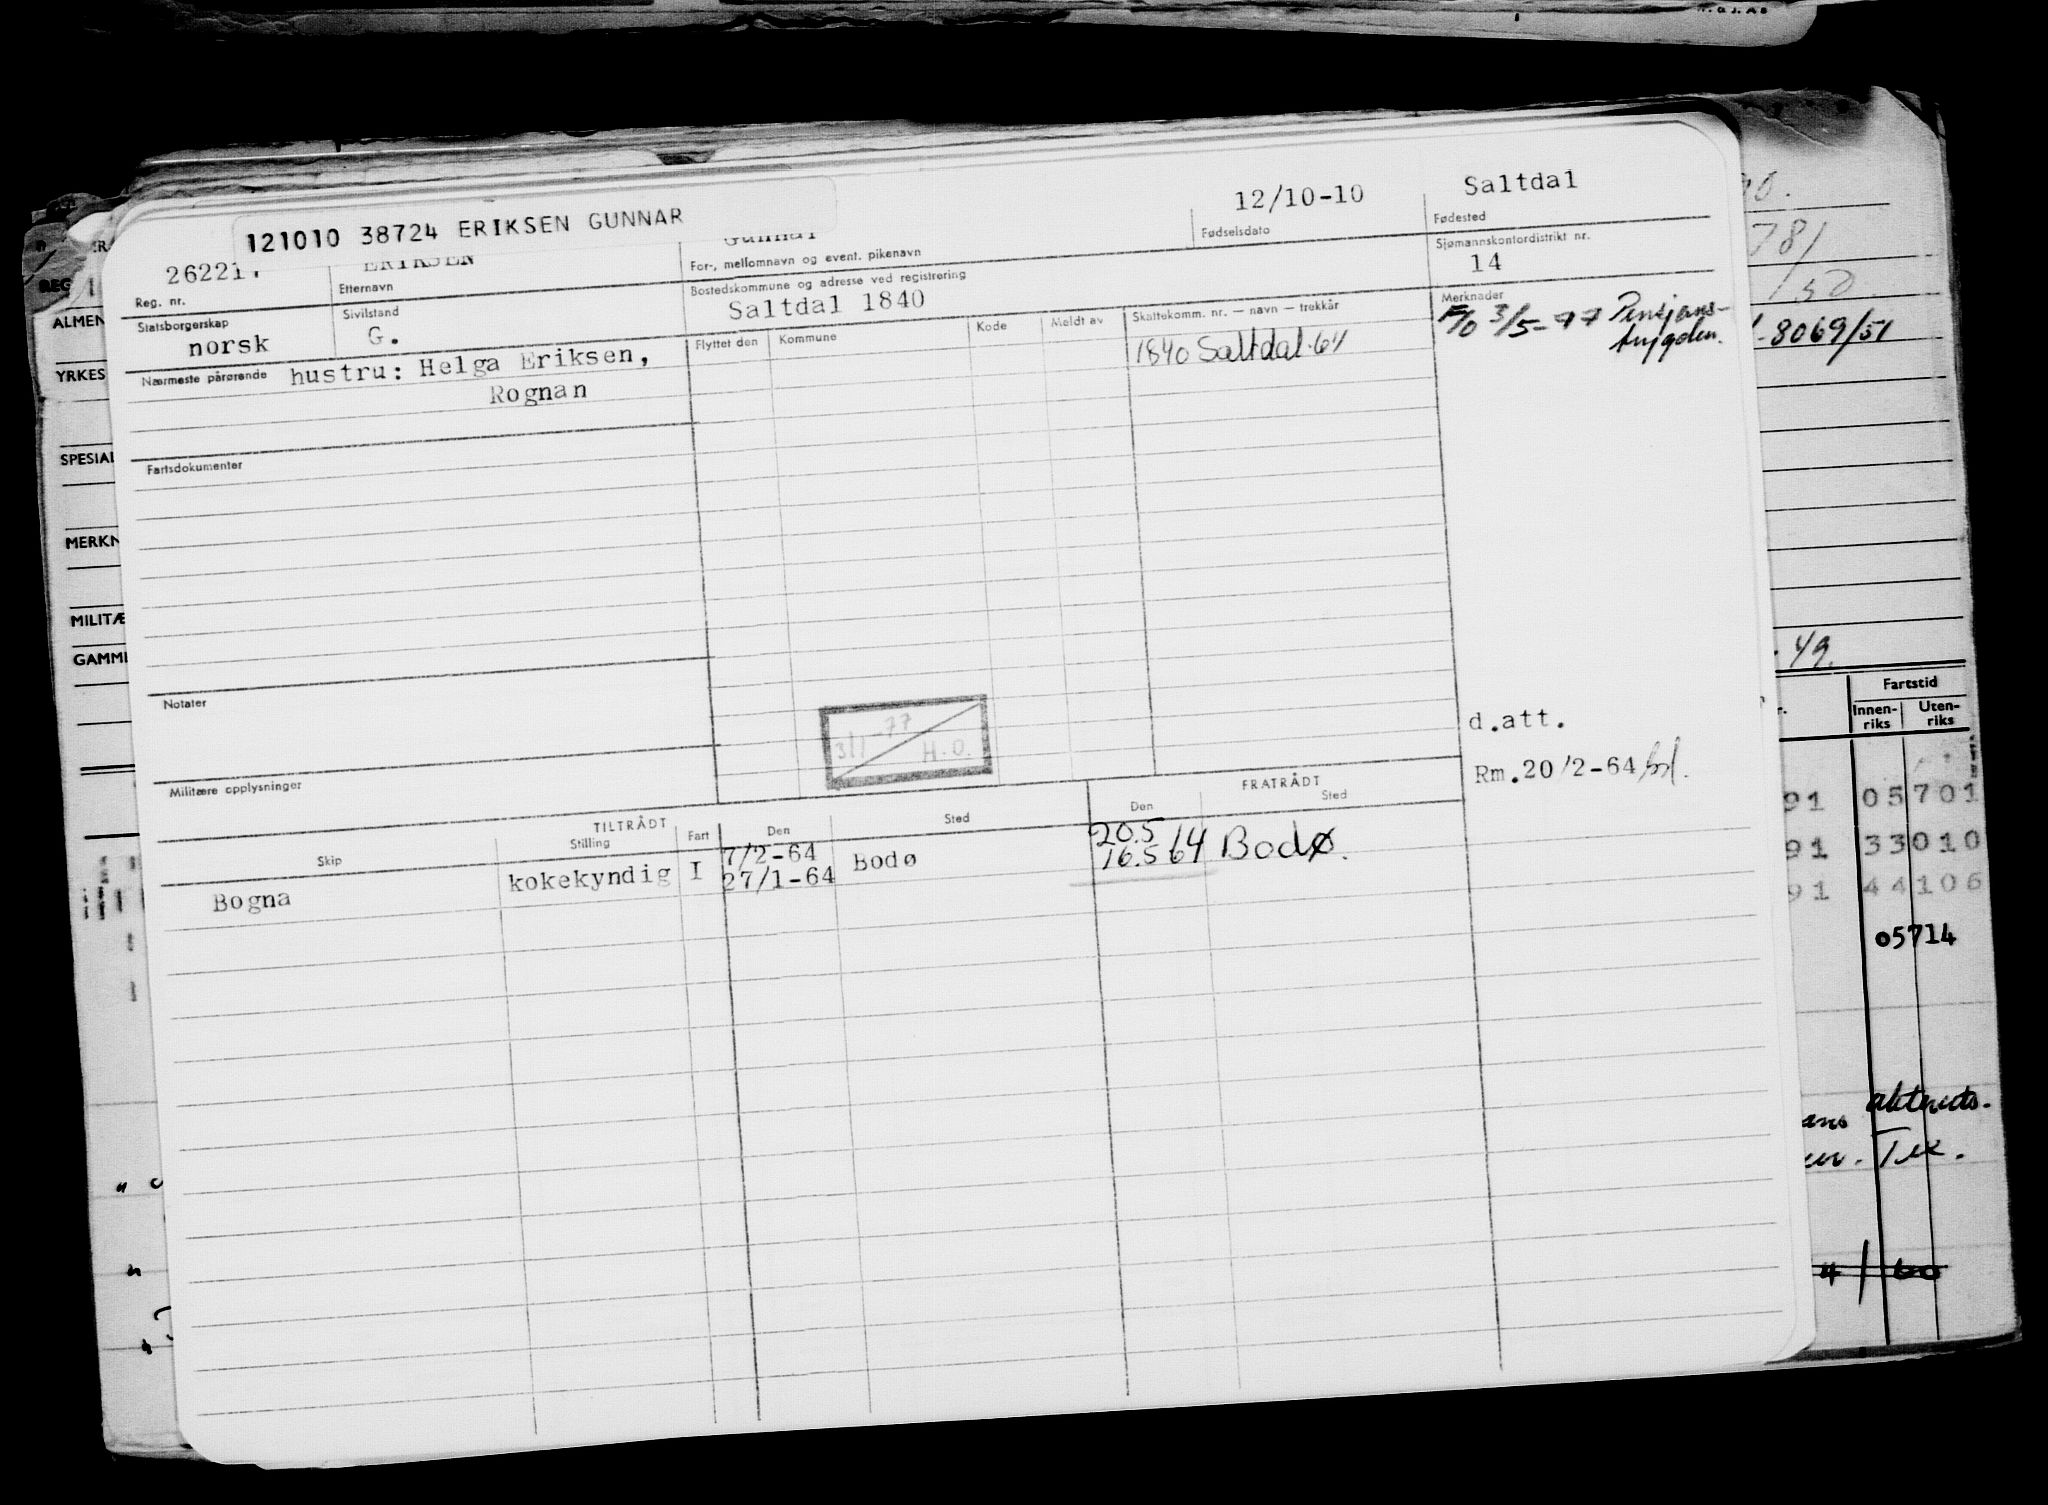 121010 38724 ERIKSEN GUNNAR
12/10-10
Saltdal
Fødselsdato
Fødested
26221.
ERIKSEN
Gunnar
Reg. nr.
Etternavn
For-, mellomnavn og event. pikenavn
Sjømannskontordistrikt nr.
14
Statsborgerskap
norsk
Sivilstand
G.
Bostedskommune og adresse ved registrering
Saltdal 1840
Merknader
F/O 3/5-77 Pensjons-
trygden.
Nærmeste pårørende
hustru: Helga Eriksen,
Rognan
Flyttet den
Kommune
Kode
Meldt av
Skattekomm. nr. — navn — trekkår
1840 Saltdal-64
Fartsdokumenter
Notater
Militære opplysninger
3/1-77
H.O.
d.att.
Rm.20/2-64
TILTRÅDT
FRATRÅDT
Skip
Stilling
Fart
Den
Sted
Den
Sted
Bogna
kokekyndig
I
7/2-64
27/1-64
Bodø
20.5
16.5 64
64 Bodø.
REG
ALMEN
YRKES
SPESIAL
MERKN
MILITÆ
GAMM
781
50
8069/51
49.
Fartstid
Innen-
riks
Uten-
riks
91 05701
91 33010
91 44106
05714